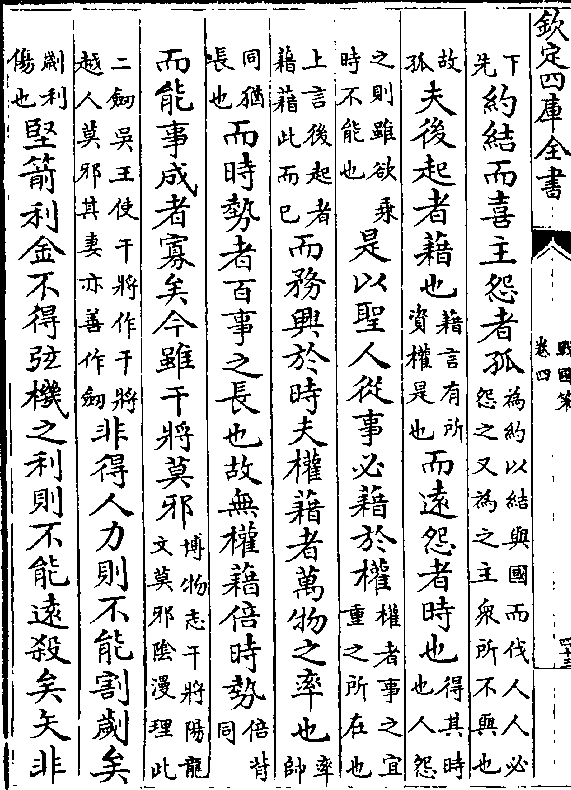 欽定四庫全書
戰國策
卷四
下先約結而喜主怨者孤為約以結與國而伐人人必怨之又為之主衆所不與也
故孤夫後起者藉也藉言有所資權是也而遠怨者時也得其時也人怨
之則雖欲乘時不能也是以聖人從事必藉於權權者事之宜重之所在也
上言後起者藉藉此而已而務興於時夫權藉者萬物之率也率帥
同猶長也而時勢者百事之長也故無權藉倍時勢倍背同
而能事成者寡矣今雖干將莫邪博物志干將陽龍文莫邪隂漫理此
二劒吳王使干將作干將越人莫邪其妻亦善作劒非得人力則不能割劌矣
劌利傷也堅箭利金不得弦機之利則不能遠殺矣矢非